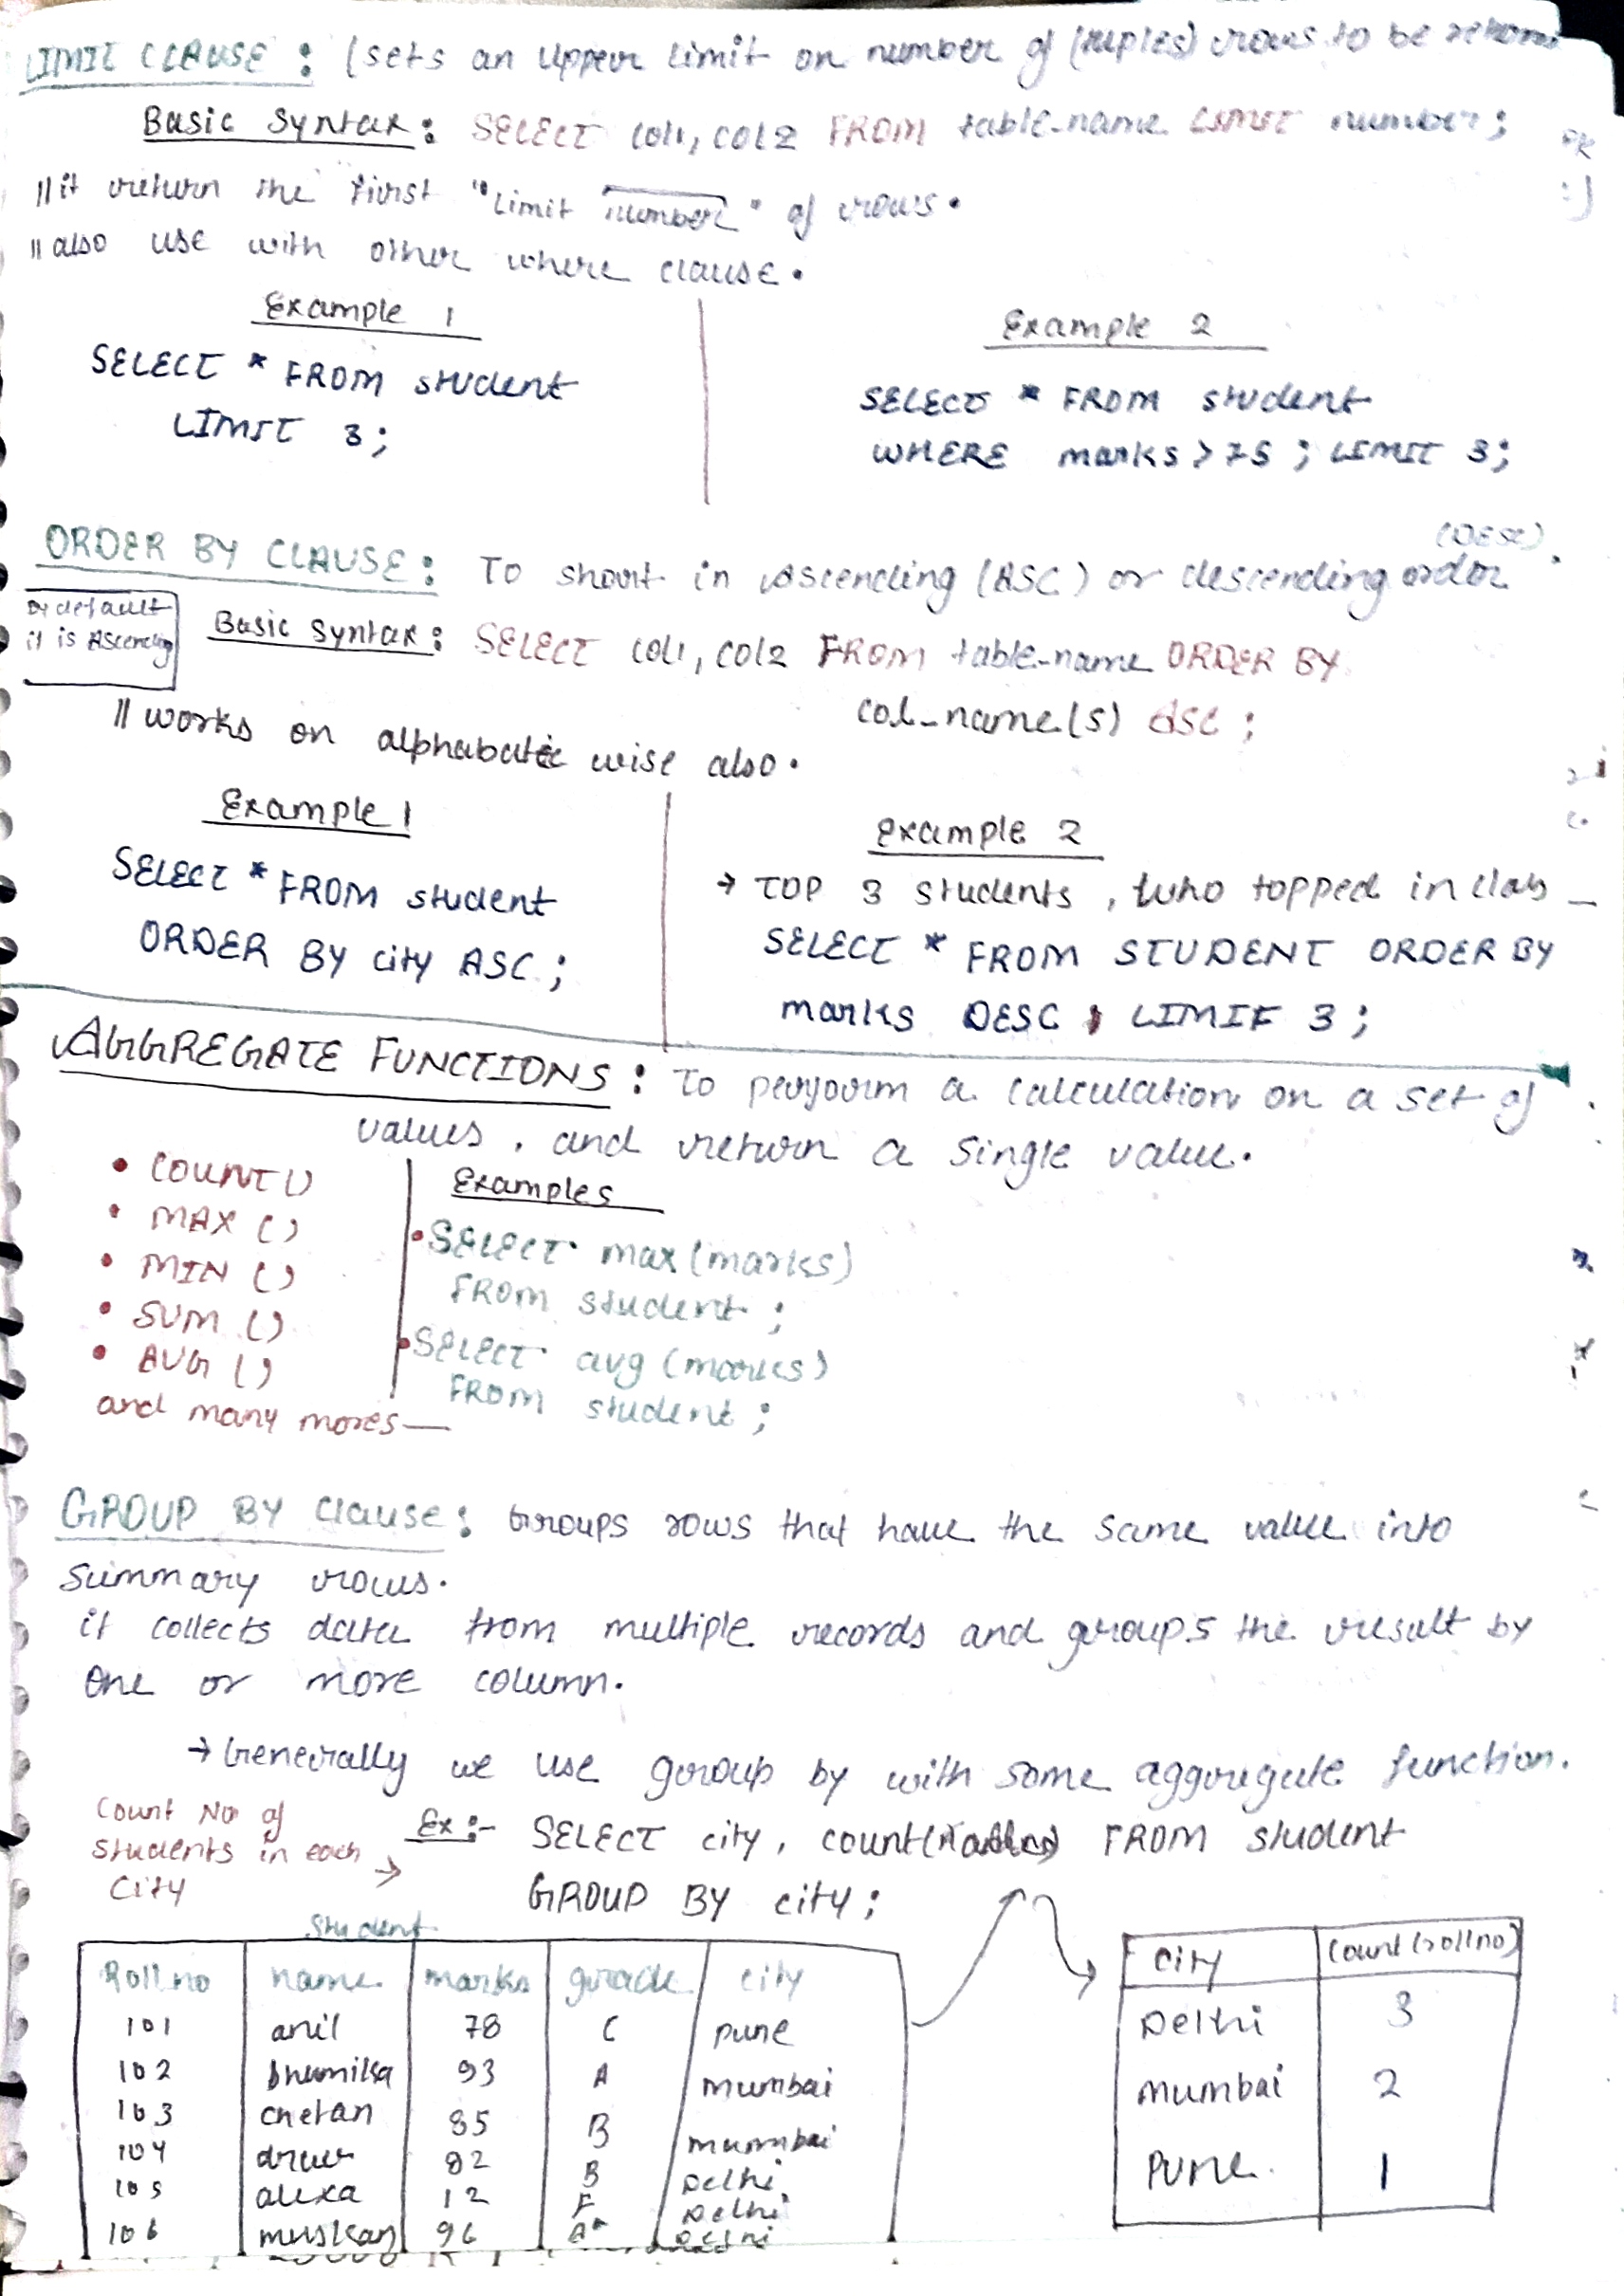 LIMIT CLAUSE : (sets an upper limit on number of (tuples) rows to be
Basic Syntax : SELECT col1, col2 FROM table-name LIMIT number ;
// it return the first "limit number" of rows.
// also use with other where clause.
Example 1
SELECT * FROM student
LIMIT 3 ;
Example 2
SELECT * FROM student
WHERE marks > 75 ; LIMIT 3;
ORDER BY CLAUSE : To short in Ascending (ASC) or descending order (DESC).
By default
it is Ascending
Basic Syntax : SELECT col1, col2 FROM table-name ORDER BY
col_name(s) asc ;
// works on alphabatic wise also.
Example 1
SELECT * FROM student
ORDER BY city ASC ;
Example 2
→ TOP 3 students, who topped in class
SELECT * FROM STUDENT ORDER BY
marks DESC LIMIT 3 ;
AGGREGATE FUNCTIONS : To perform a calculation on a set of
values, and return a single value.
• COUNT ()
• MAX ()
• MIN ()
• SUM ()
• AVG ()
and many mores—
Examples
• SELECT max (marks)
FROM student ;
• SELECT avg (marks)
FROM student ;
GROUP BY Clause : Groups rows that have the same value into
summary rows.
it collects data from multiple records and groups the result by
one or more column.
→ Generally we use group by with some aggregate function.
Count No of
students in each →
City
Ex :- SELECT city, count( ) FROM student
GROUP BY city ;
student
Roll no name marks grade city
101 anil 78 C pune
102 bhumika 93 A mumbai
103 chetan 85 B mumbai
104 dhruv 82 B Delhi
105 alexa 12 F Delhi
106 muskan 96 A Delhi
City Count (rollno)
Delhi 3
mumbai 2
Pune 1